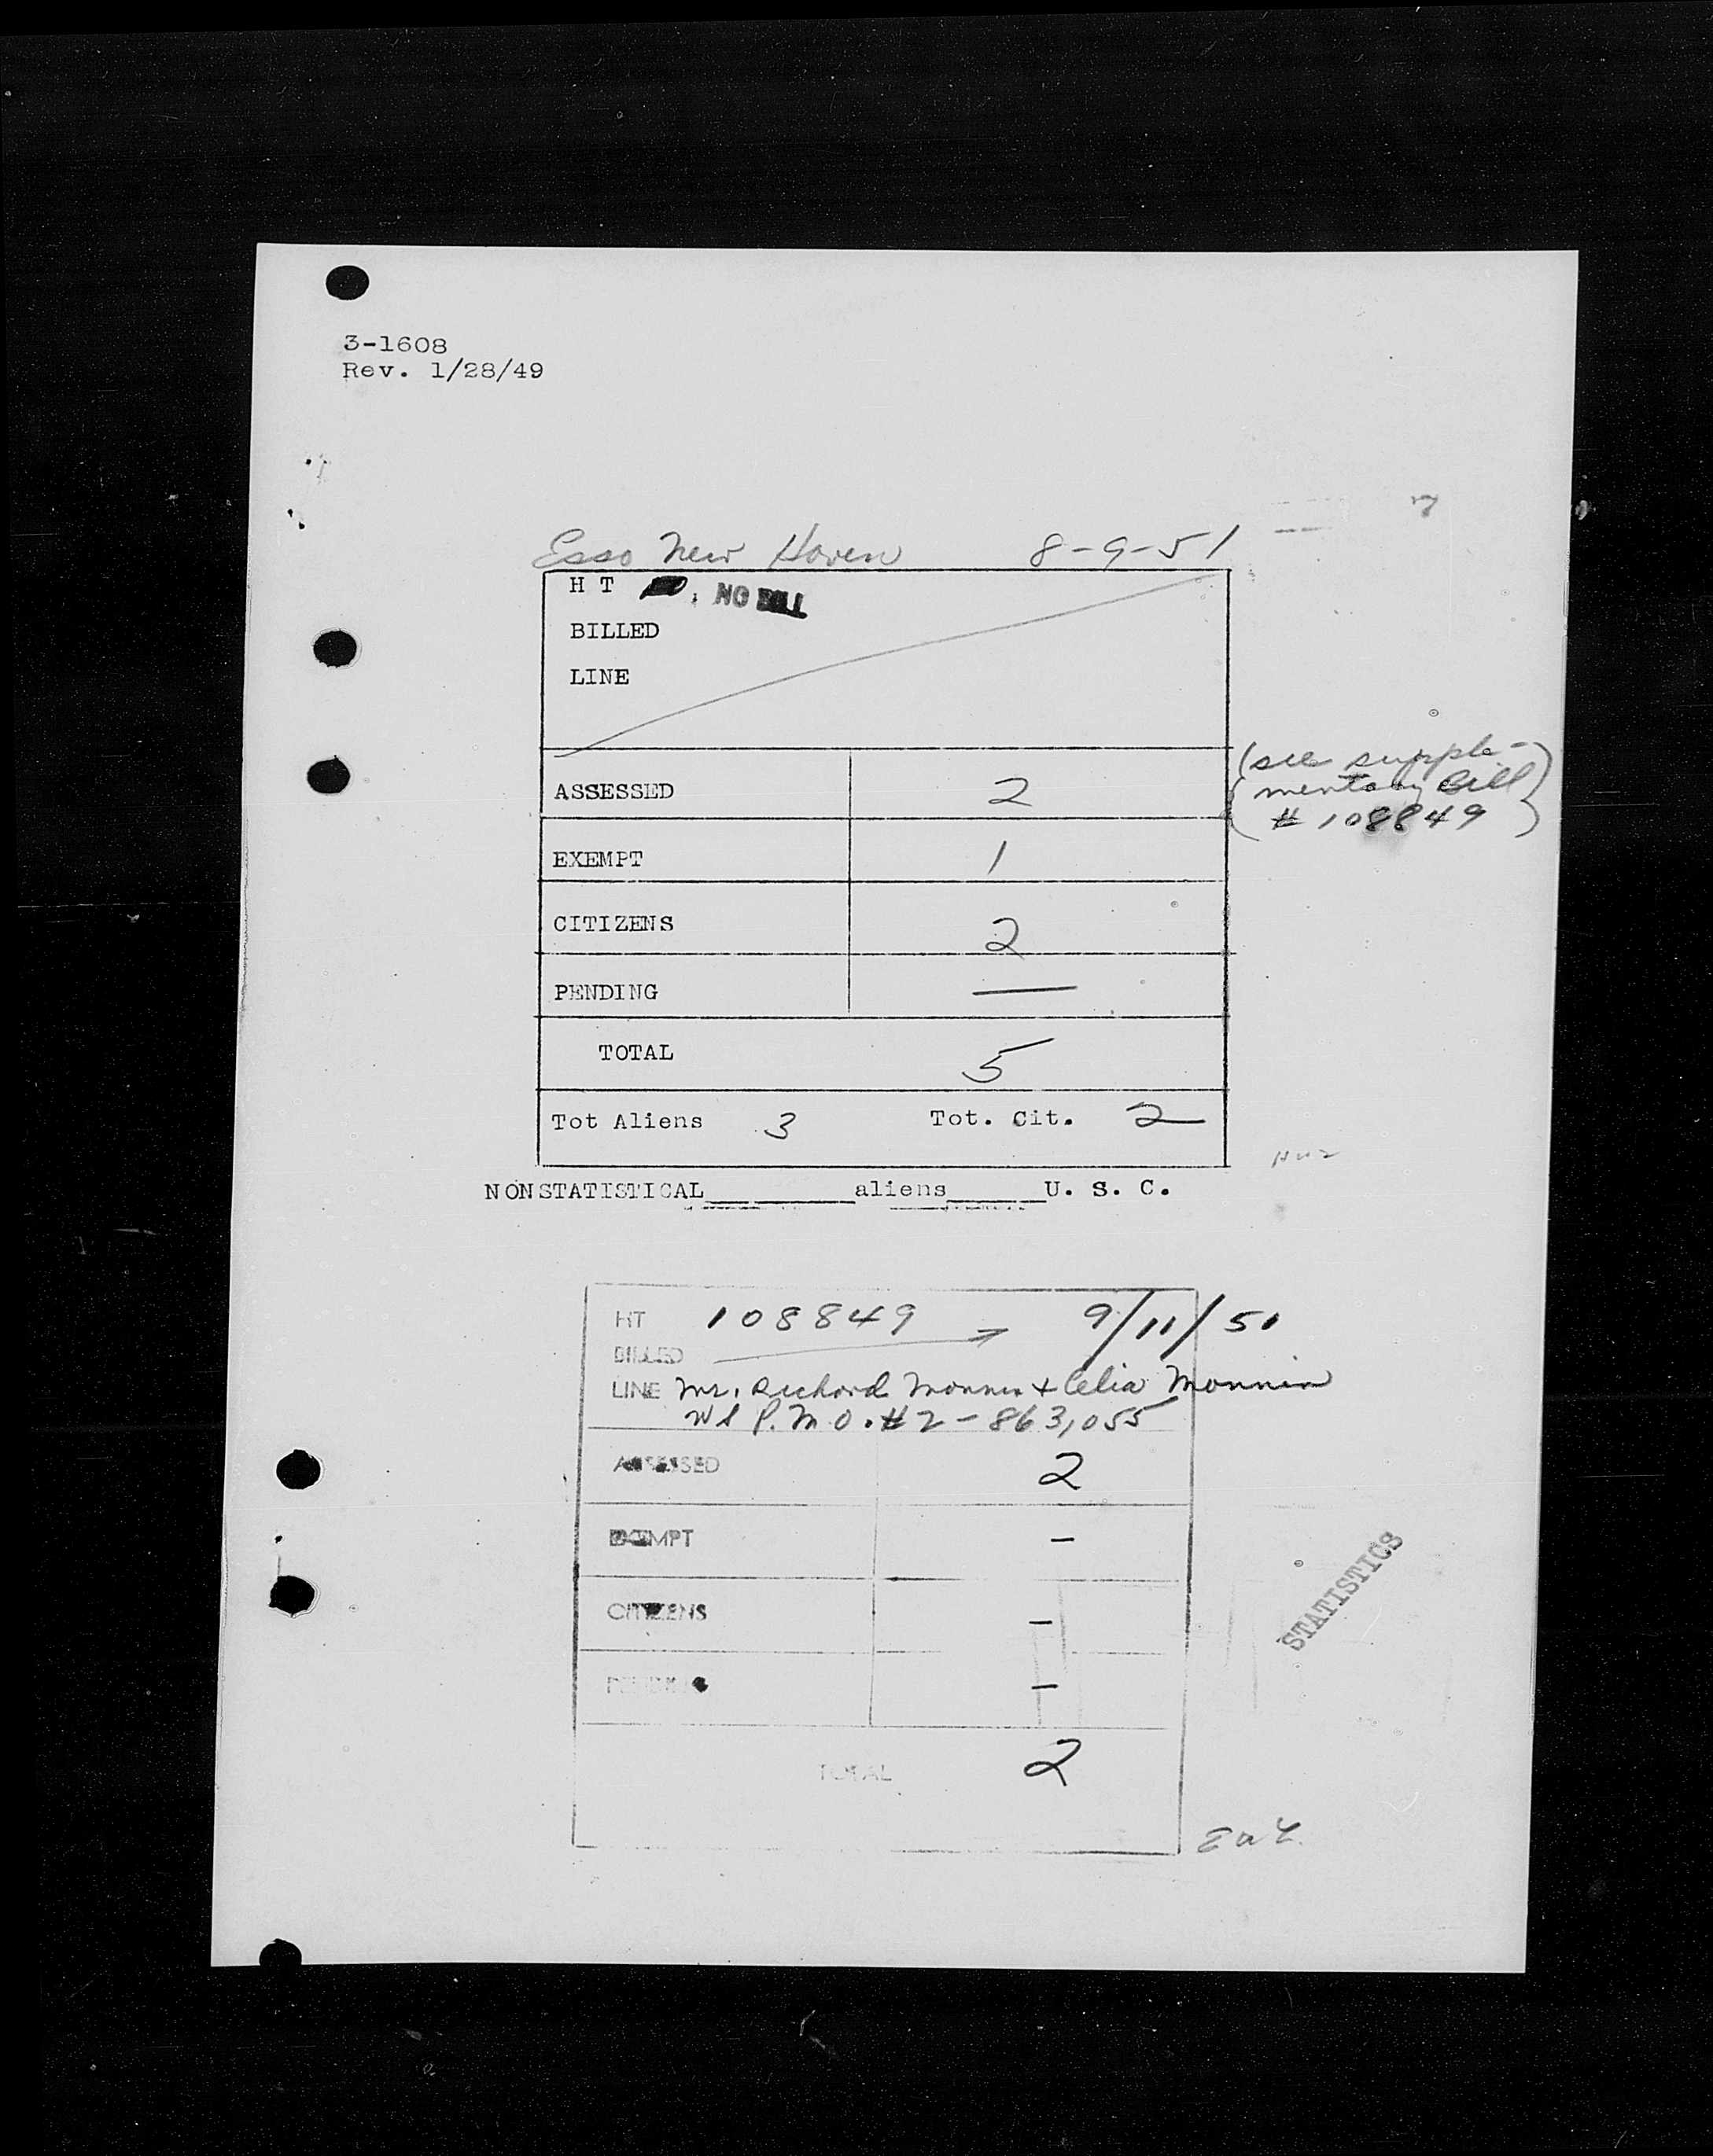 3-1608
Rev. 1/28/49
Esso New Haven 8-9-51
H T NO BILL
BILLED
LINE
ASSESSED 2
(see supple-
mentary Bill
# 108849)
EXEMPT 1
CITIZENS 2
PENDING —
TOTAL 5
Tot Aliens 3 Tot. Cit. 2
NONSTATISTICAL__________aliens______U. S. C.
HT 108849 → 9/11/51
BILLED
LINE Mr. Richard Monnin + Celia Monnin
P.M.O. #2-863,055
ASSESSED 2
EXEMPT —
CITIZENS —
PENDING —
TOTAL 2
STATISTICS